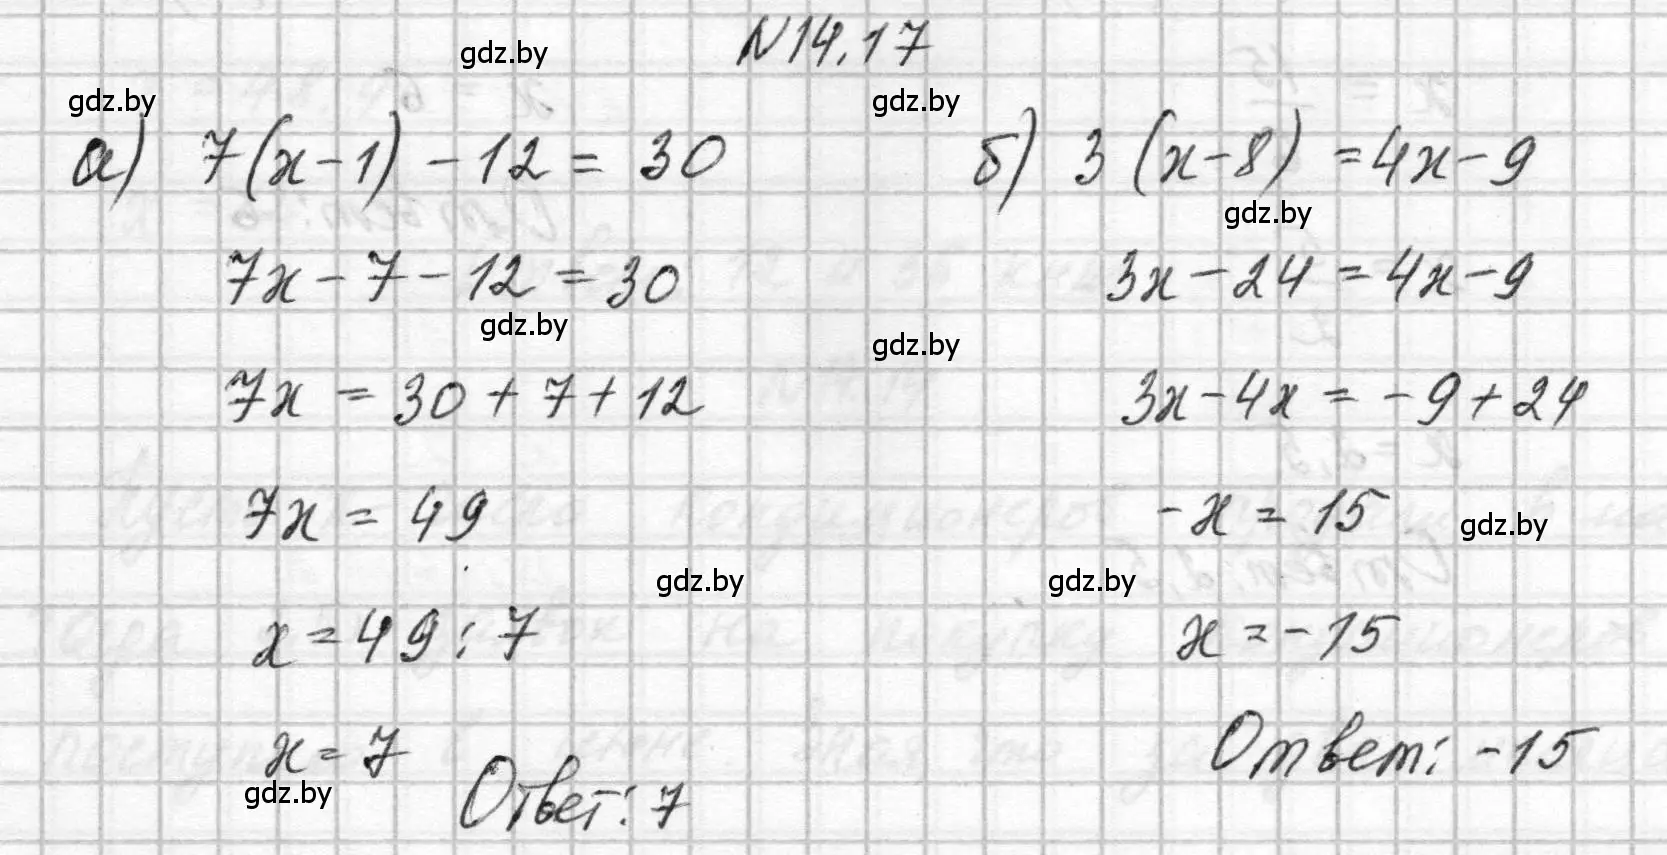 N14.17
а) 7(x-1) - 12 = 30
7x - 7 - 12 = 30
7x = 30 + 7 + 12
7x = 49
x = 49 : 7
x = 7
Ответ: 7
б) 3(x-8) = 4x - 9
3x - 24 = 4x - 9
3x - 4x = - 9 + 24
-x = 15
x = - 15
Ответ: - 15
gdz.by
gdz.by
gdz.by
gdz.by
gdz.by
gdz.by
gdz.by
gdz.by
gdz.by
gdz.by